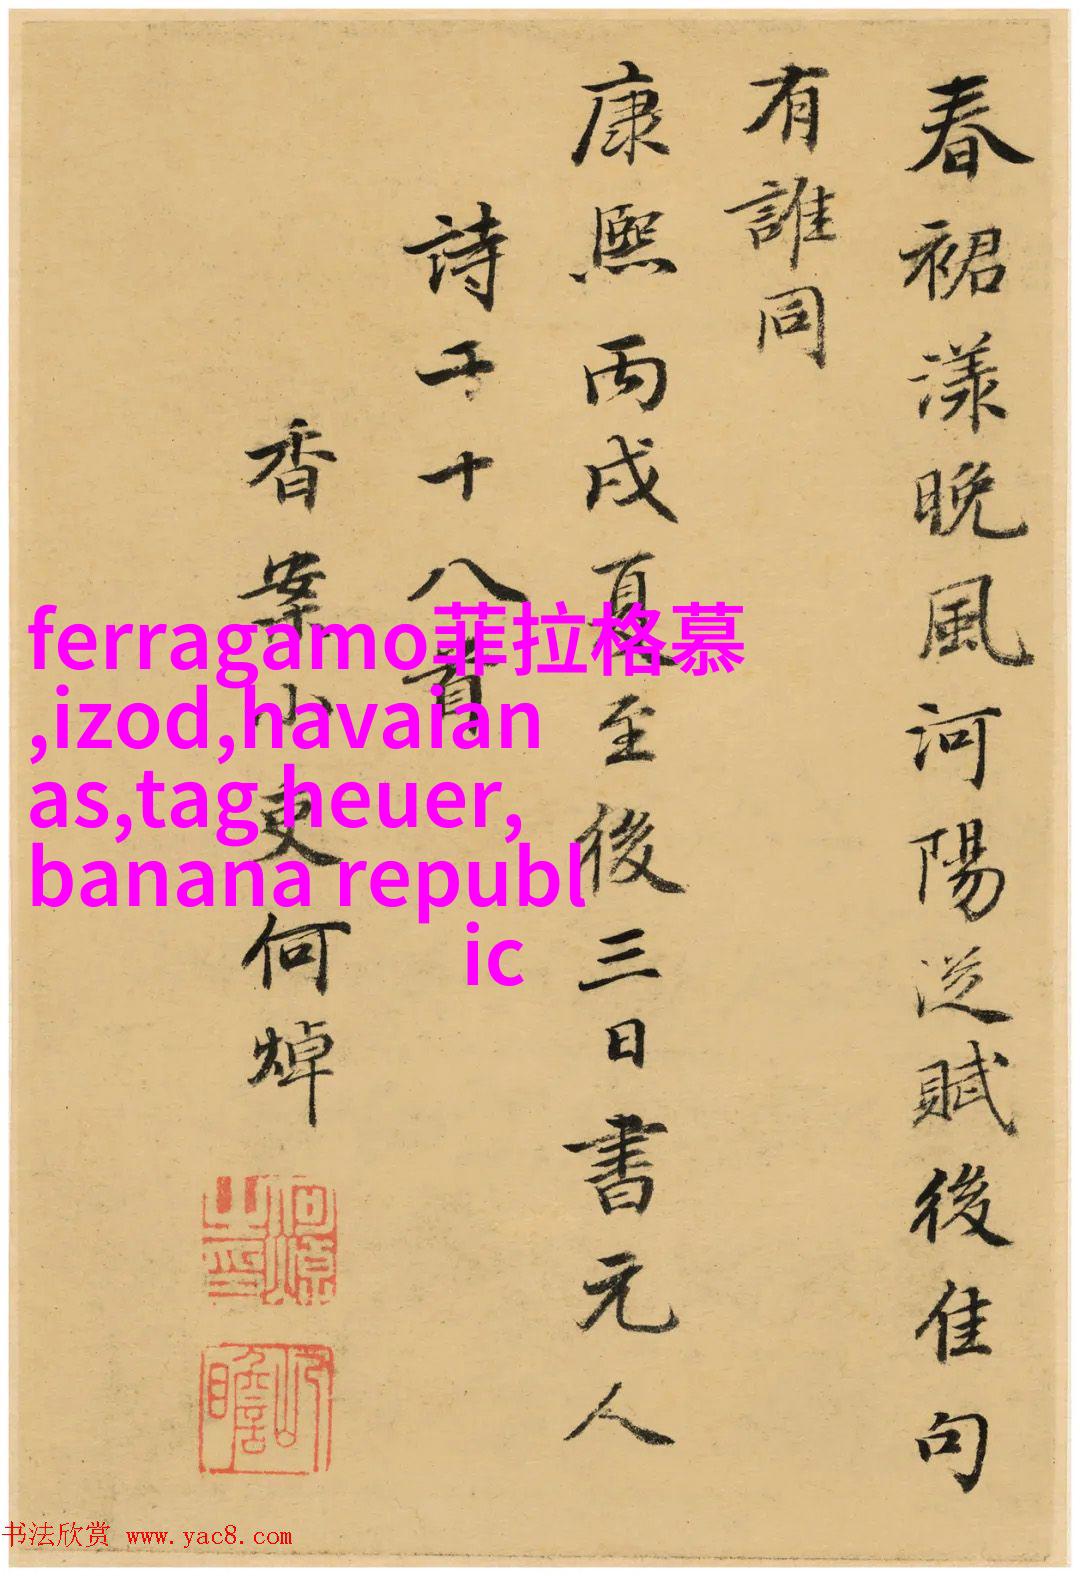 春裙漾晚風河陽從賦後佳句
有誰同
康熙丙戌夏至後三日書元人
詩十八首
香案小吏何焯
何焯之印
屺瞻
ferragamo菲拉格慕
,izod,havaian
as,tag heuer,
banana republ
ic
书法欣赏 www.yac8.com